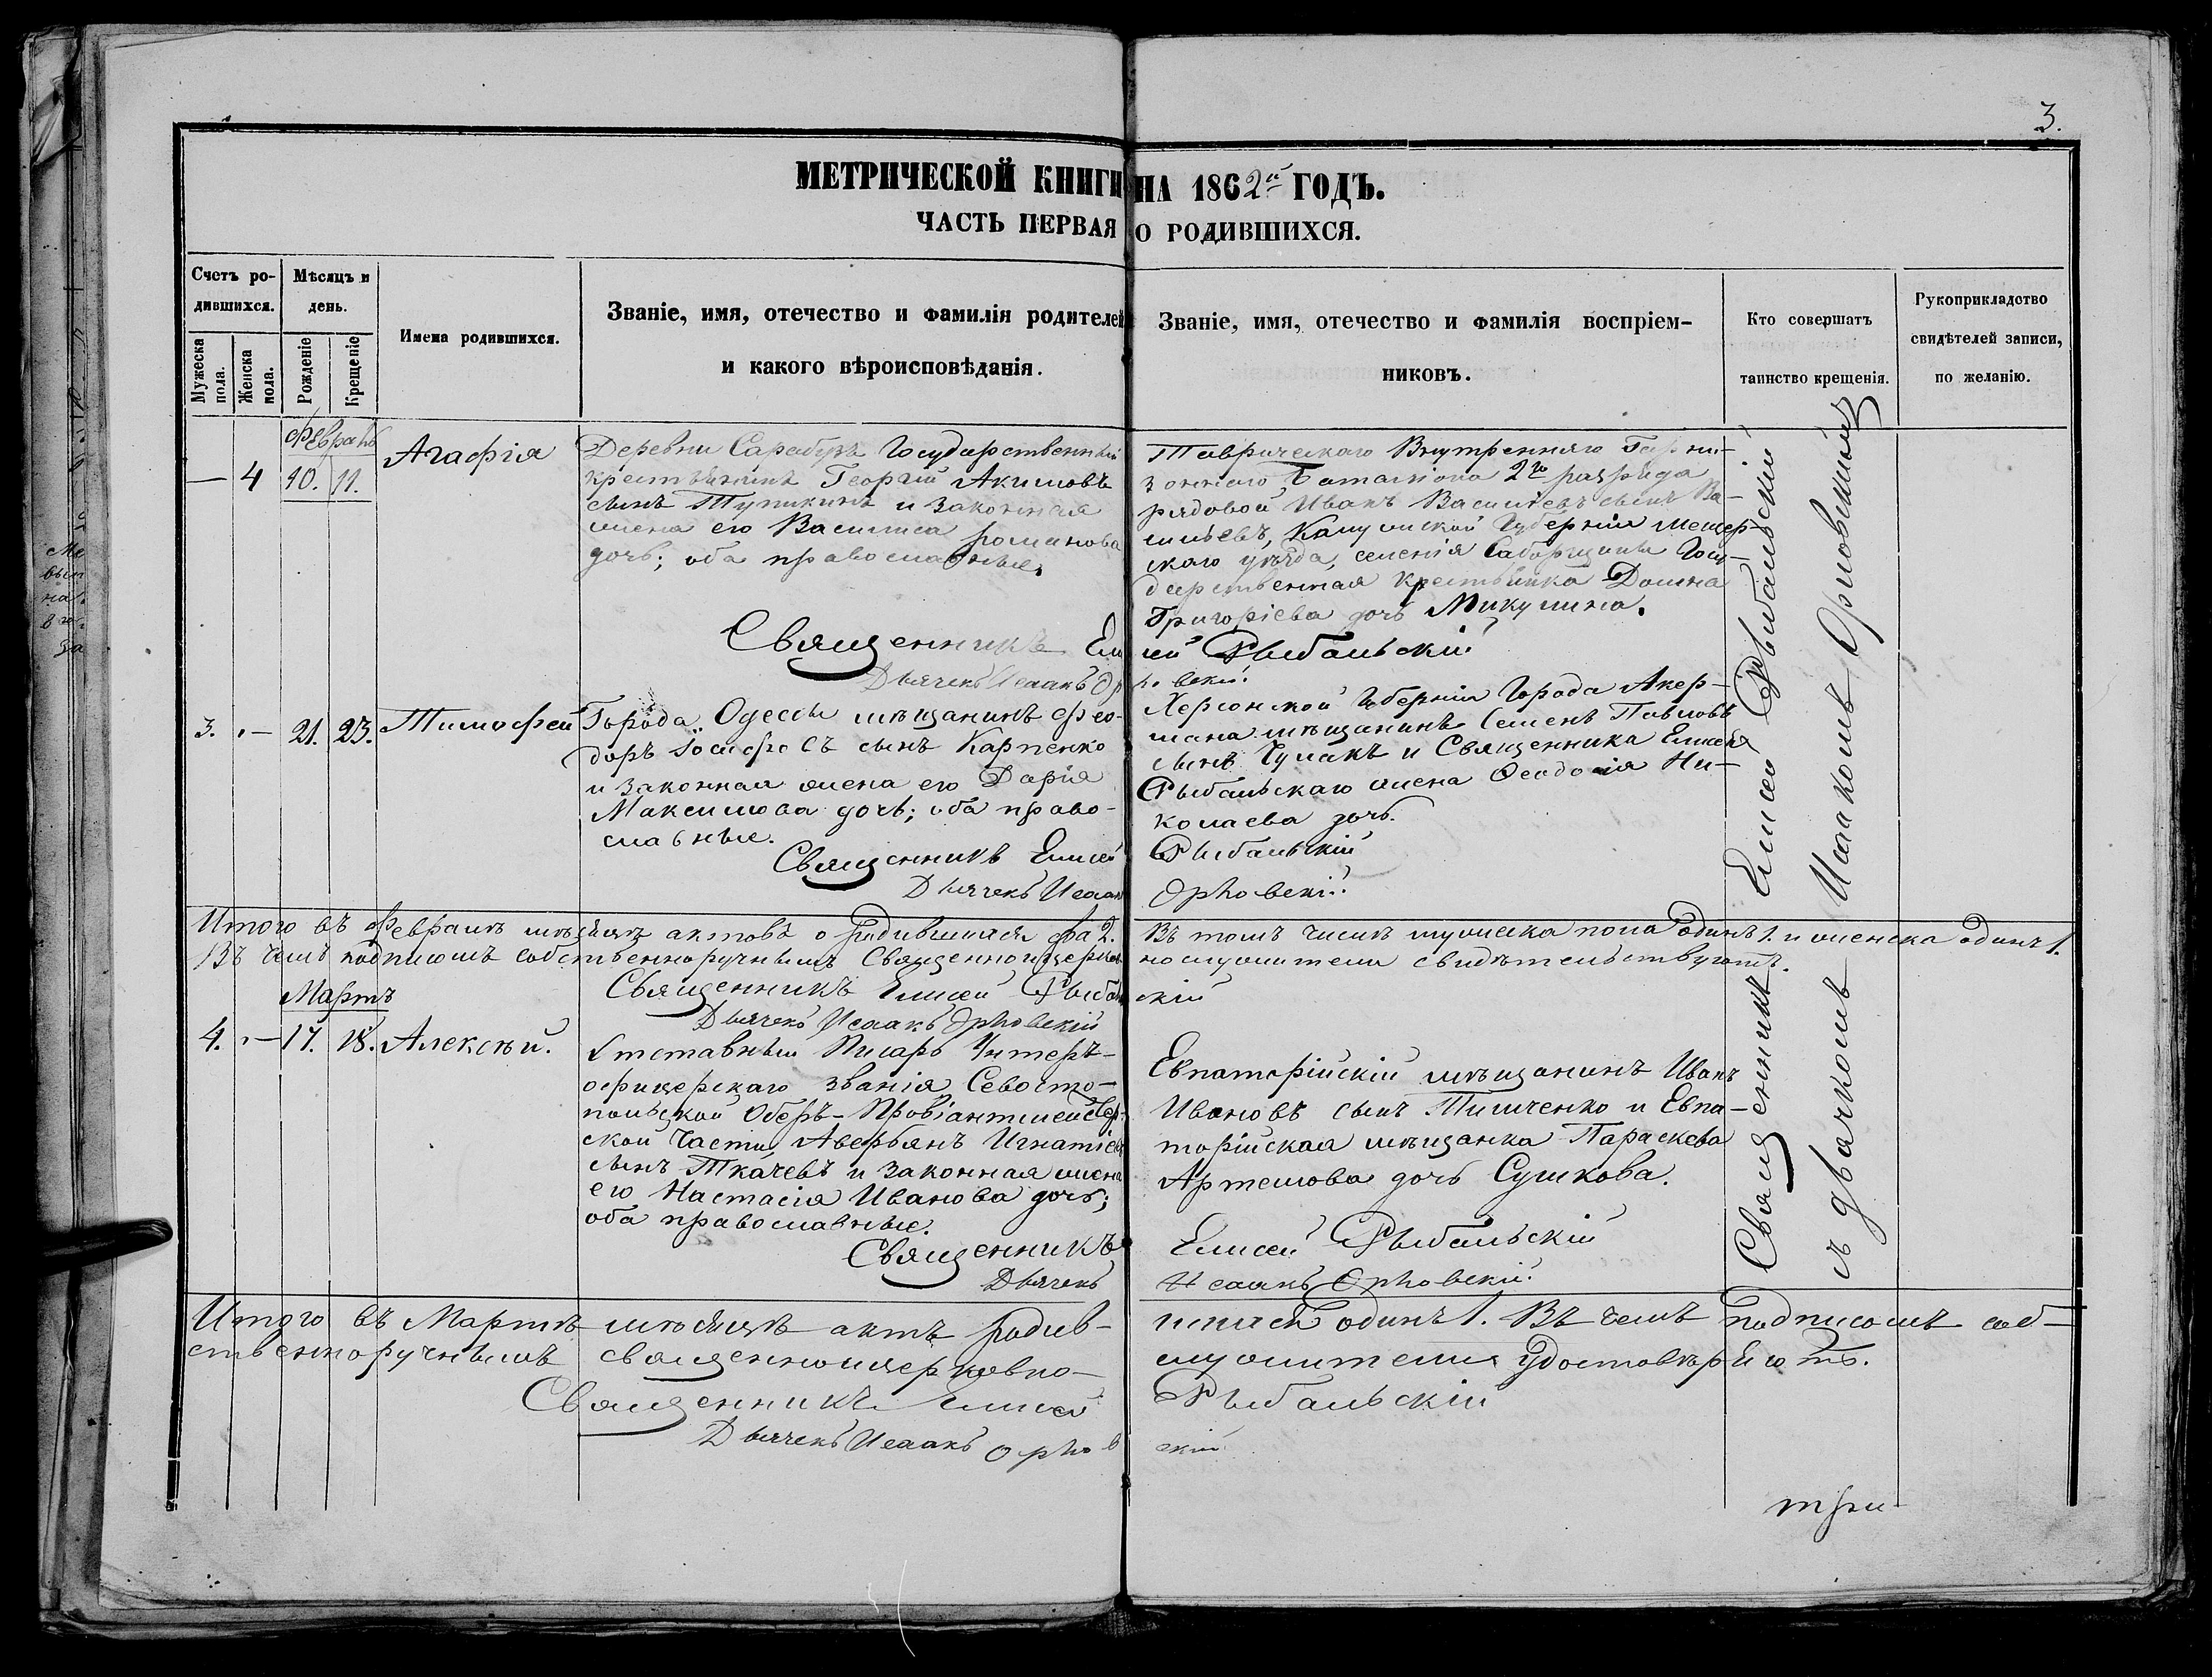 3.
МЕТРИЧЕСКОЙ КНИГИ НА 1862й ГОДЪ.
ЧАСТЬ ПЕРВАЯ О РОДИВШИХСЯ.
Счетъ ро-
дившихся.
Мужеска пола.
Женска пола.
Мѣсяцъ и
день.
Рожденіе
Крещеніе
Имена родившихся.
Званіе, имя, отечество и фамилія родителей
и какого вѣроисповѣданія.
Званіе, имя, отечество и фамилія воспріем-
никовъ.
Кто совершатъ
таинство крещенія.
Рукоприкладство
свидѣтелей записи,
по желанію.
Февраль
— 4 10. 11. Агафія
Деревни Сарабузъ Государственный
крестьянинъ Георгій Акимовъ
сынъ Тупикинъ и законная
жена его Василиса Романова
дочь; оба православные.
Таврическаго Внутренняго Гарни-
зоннаго Баталіона 2го разряда
рядовой Иванъ Васильевъ сынъ Ва-
сильевъ, Калужской Губерніи Мещер-
скаго уѣзда, селенія Госу-
дарственная крестьянка Домна
Григоріева дочь Микулина.
Священникъ Елисей Рыбальскій
Дьячекъ Исаакъ Орловскій
3. — 21. 23. Тимофей
Города Одессы мѣщанинъ Фео-
доръ Іосифовъ сынъ Карпенко
и законная жена его Дарія
Максимова дочь; оба право-
славные.
Херсонской Губерніи Города Акер-
мана мѣщанинъ Семенъ Павловъ
сынъ Чумакъ и Священника Елисея
Рыбальскаго жена Феодосія Ни-
колаева дочь.
Священникъ Елисей Рыбальскій
Дьячекъ Исаакъ Орловскій
Итого въ Февралѣ мѣсяцѣ актовъ о родившихся два 2. Въ томъ числѣ мужеска пола одинъ 1. и женска одинъ 1.
Въ чемъ подписомъ собственноручнымъ Священно и церковнослужители свидѣтельствуютъ.
Священникъ Елисей Рыбальскій
Дьячекъ Исаакъ Орловскій
Мартъ
4. — 17. 18. Алексѣй.
Отставный Писарь Унтеръ-
офицерскаго званія Севосто-
польской Оберъ-Провіантмейстер-
ской Части, Аверьянъ Игнатіевъ
сынъ Ткачевъ и законная жена
его Настасія Иванова дочь;
оба православные.
Евпаторійскій мѣщанинъ Иванъ
Ивановъ сынъ Тимченко и Евпа-
торійская мѣщанка Параскева
Артемова дочь Сушкова.
Священникъ Елисей Рыбальскій
Дьячекъ Исаакъ Орловскій
Священникъ Елисей Рыбальскій
съ дьячкомъ Исаакомъ Орловскимъ
Итого въ Мартѣ мѣсяцѣ актъ родив-шихся одинъ 1. Въ чемъ подписомъ соб-
ственноручнымъ священноцерковно-служители удостовѣряютъ.
Священникъ Елисей Рыбальскій
Дьячекъ Исаакъ Орловскій
три